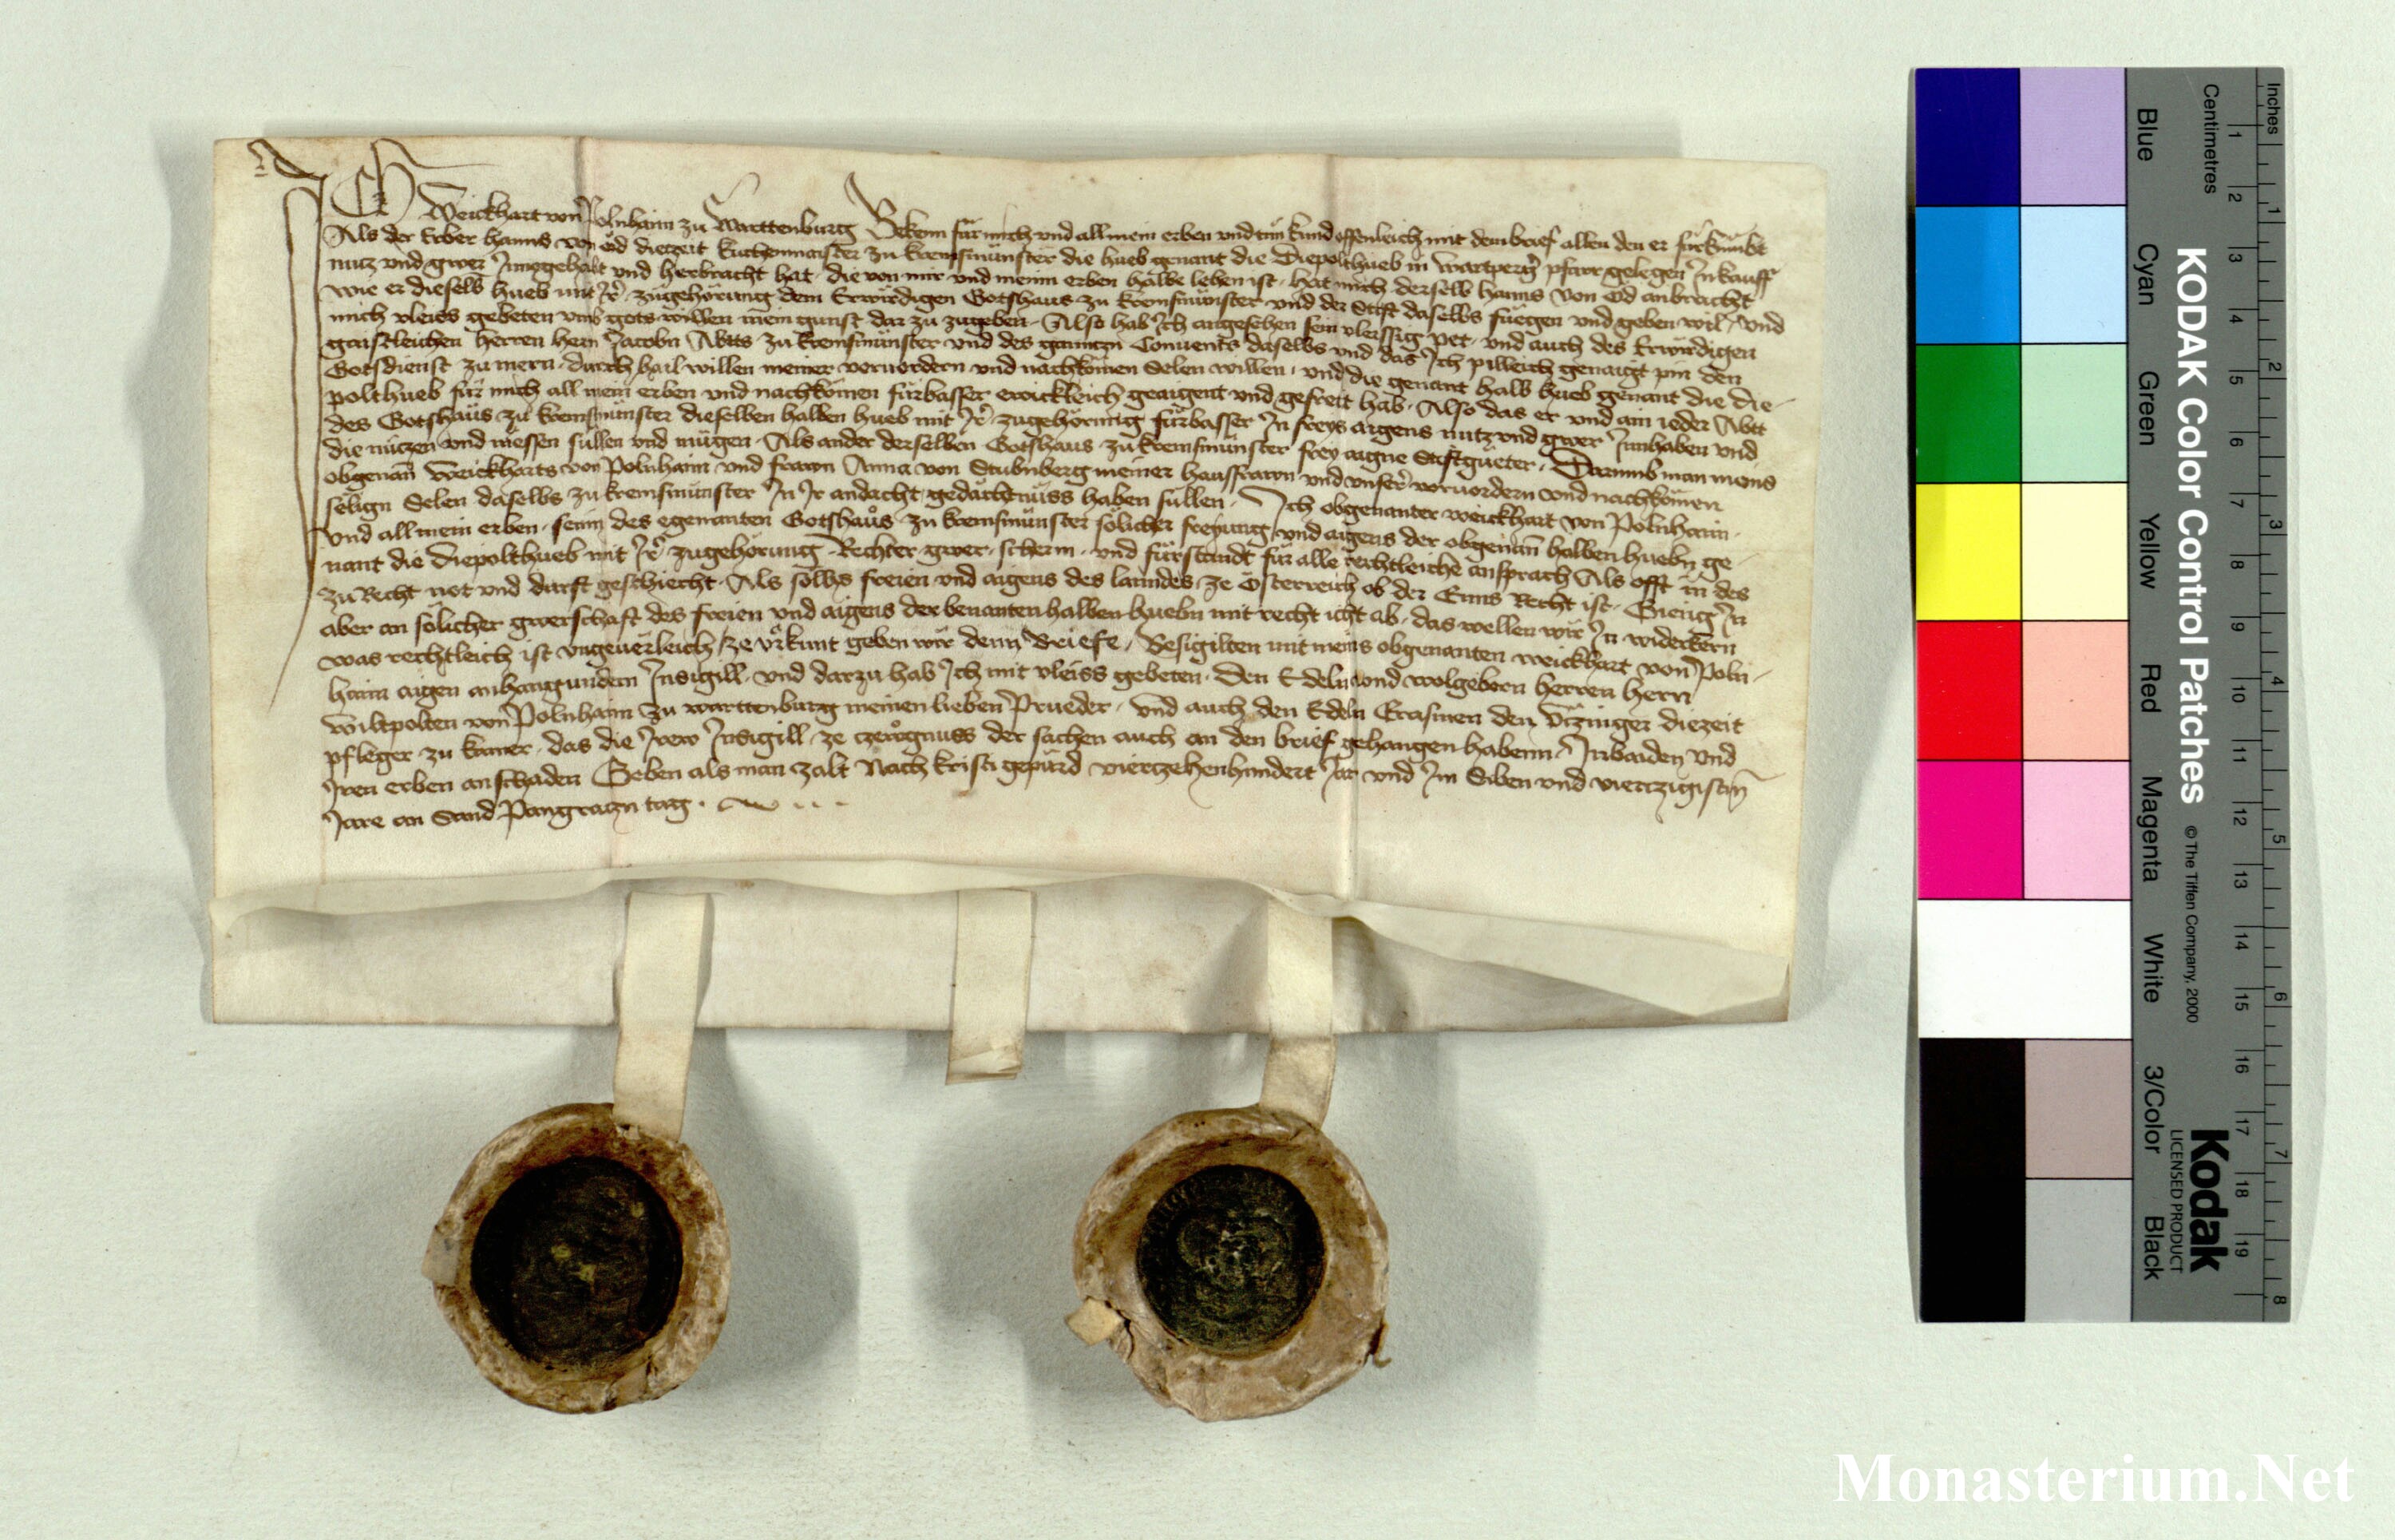 Ich Weickhart von Polnhaim zu Warttenburg Bekenn für mich und all mein erben und tün kund offenleich mit dem brief allen den er fürkümbt
Als der Erber Hanns von Öd diezeit kuchenmaister zu kremsmünster die hueb genant die Diepolthueb in wartperg pfarr gelegen In kauff
nutz und gwer Innegehalt und herbracht hat · die von mir und meinn erben halbe lehen ist · hat mich derselb hanns von Öd anbracht
wie er dieselb hueb mit Ir zugehörung dem Erwirdigen Gotshaus zu kremsmunster und der Stift daselbs füegen und geben wil · und
mich vleiss gebeten umb gots willen mein gunst dar zu zugeben · Also hab Ich angesehen sein vleissig pet · und auch des Erwirdigen
gaistleichen Herren Hern Jacobn Abtts zu kremsmünster und des ganntzn Convents daselbs und das Ich pilleich genaigt pin den
Gotsdienst zu mern · durch hail willen meiner vervordern und nachkömen Selen willen · und die genant halb hueb genant die Die-
polthueb für mich all mein erben und nachkömen fürbasser ewickleich geaigent und gefreit hab · Also das er und ain ieder Abtt
des Gotshaus zu kremsmünster dieselben halben hueb mit Ir zugehörung fürbasser In freys aigens nutz und gwer Innhaben und
die nützen und niessen sullen und mügen · Als ander derselben Gotshaus zu kremsmünster frey aigne Stiftgüeter · Darumb man meins
obgenan Weickharts von Polnhaim und frawn Anna von Stubnberg meiner hausfrawn und unser vorvordern und nachkömen
seligen Selen daselbs zu kremsmünster In Ir andacht gedächtnüss haben sullen · Ich obgenanter weickhart von Polnhaim ·
Und all mein erben · seinn des egenanten Gotshaus zu kremsmünster sölicher freyung und aigens der obgenan halben huebn ge-
nant die Diepolthueb mit Ir zugehörung · Rechter gwer · scherm · und fürstandt für alle rechtleiche ansprach Als offt in des
zu Recht not und durft geschiecht · Als sölhs freien und aigens des lanndes ze Österreich ob der Enns Recht ist · Gieng In
aber an sölicher gwerschaft des freien und aigens der benanten halben huebn mit recht icht ab · das wellen wir In widerkern
was rechtleich ist ungeverleich · ze urkunt geben wir denn Briefe · Besigilten mit meins obgenanten weickhart von Poln-
haim aigen anhangundem Insigill · und darzu hab Ich mit vleiss gebeten · den Edeln und wolgeborn herren hern
Wiltpolten von Polnhaim zu warttenburg meinen lieben Prueder · Und auch den Edeln Erasmen den Utzinger diezeit
pfleger zu kamer · das die Irew Insigill ze czewgnuss der sachen auch an den brief gehangen habenn · In baiden und
Iren erben an schaden Geben als man zalt Nach kristi gepürd vierczehenhundert Jar und Im Siben und vierczigistm
Jare an Sand Pangraczn tag ·
KODAK Color Control Patches
© The Tiffen Company, 2000
Kodak
LICENSED PRODUCT
Inches
1 2 3 4 5 6 7 8
Centimetres
1 2 3 4 5 6 7 8 9 10 11 12 13 14 15 16 17 18 19
Blue Cyan Green Yellow Red Magenta White 3/Color Black
Monasterium.Net